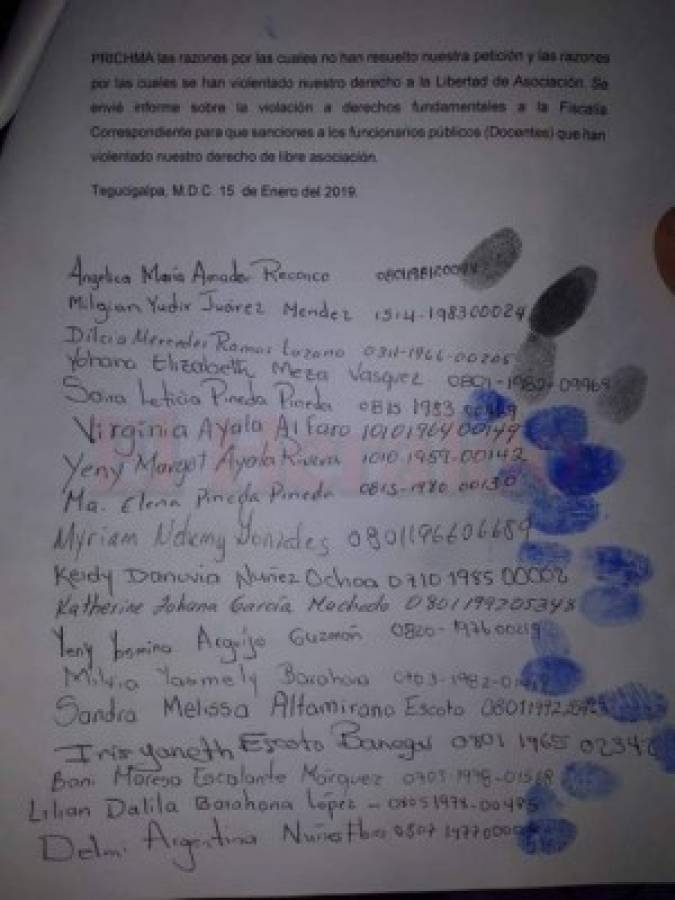 PRICHMA las razones por las cuales no han resuelto nuestra petición y las razones
por las cuales se han violentado nuestro derecho a la Libertad de Asociación. Se
envié informe sobre la violación a derechos fundamentales a la Fiscalía
Correspondiente para que sanciones a los funcionarios públicos (Docentes) que han
violentado nuestro derecho de libre asociación.
Tegucigalpa, M.D.C. 15 de Enero del 2019.
Angelica Maria Amador Reconco
Milgian Yudir Juárez Mendez 1514-198300024
Dilcia Mercedes Ramos Lozano 0311-1966-00205
Yohana Elizabeth Meza Vasquez 0801-1982-09969
Sonia Leticia Pineda Pineda 0815 1983
Virginia Ayala Alfaro 1010196400149
Yeny Margot Ayala Rivera 1010-1959-00142
Ma. Elena Pineda Pineda 0815-1980 00130
Myriam Gonzales 0801196606689
Keidy Danuvia Nuñez Ochoa 0710 1985 00002
Katherine Johana García Machado 0801199205348
Yeny Yasmina Guzmán 0820-197600219
Milvia Yasmely Barahona 0703-1982
Sandra Melissa Altamirano Escoto
Iris Yaneth Escoto Banegas 0801 1965
Escalante Márquez
Lilian Dalila Barahona López -
Delmi Argentina